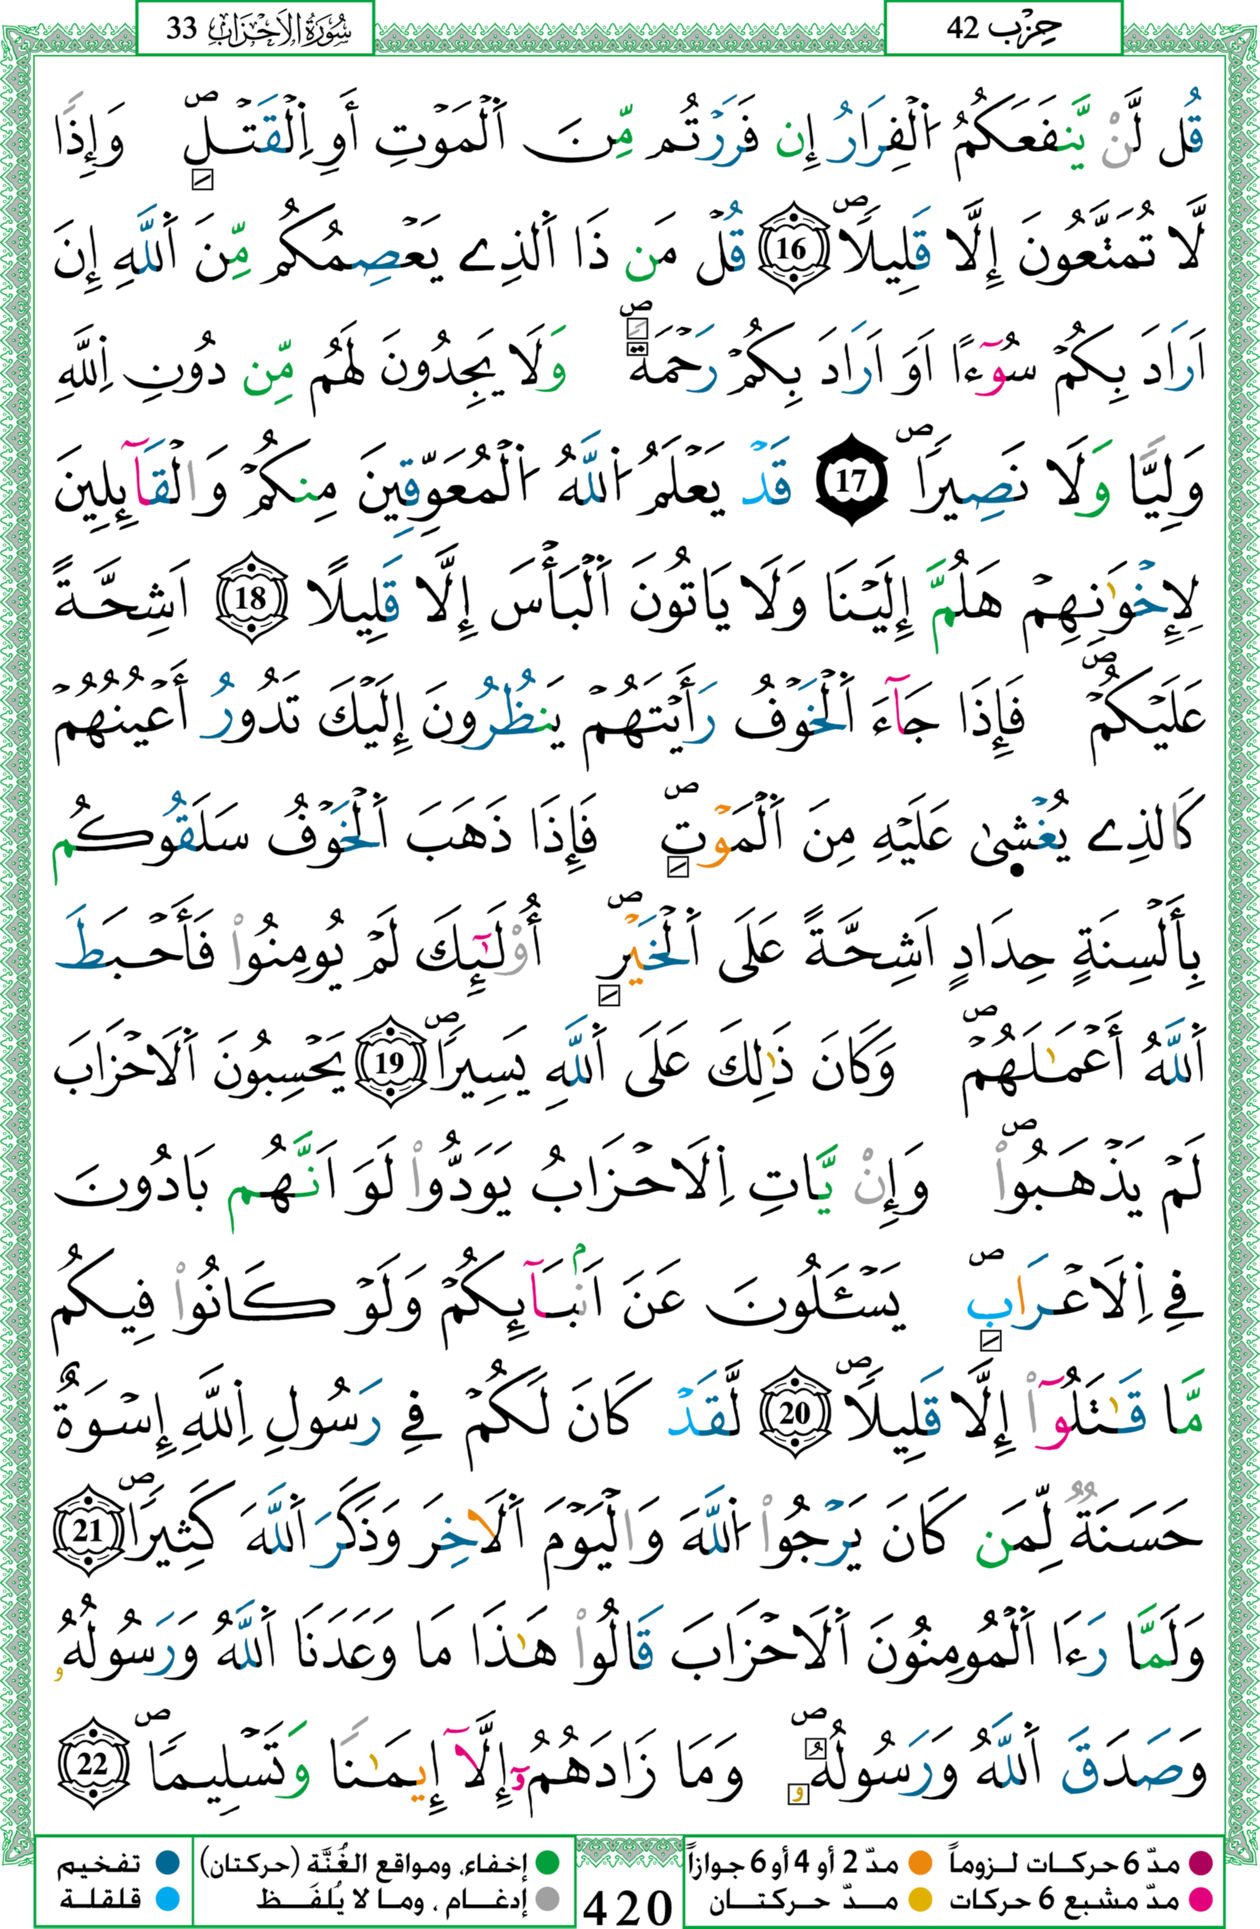 سُورَةُ الْأَحْزَابِ 33
حِزْب 42
قُل لَّنْ يَّنفَعَكُمُ اُ۬لْفِرَارُ إِن فَرَرْتُم مِّنَ اَ۬لْمَوْتِ أَوِ اِ۬لْقَتْلِۖ وَإِذاٗ
لَّا تُمَتَّعُونَ إِلَّا قَلِيلاٗۖ 16 قُلْ مَن ذَا اَ۬لذِے يَعْصِمُكُم مِّنَ اَ۬للَّهِ إِنَ
اَرَادَ بِكُمْ سُوٓءاً اَوَ اَرَادَ بِكُمْ رَحْمَةٗۖ وَلَا يَجِدُونَ لَهُم مِّن دُونِ اِ۬للَّهِ
وَلِيّاٗ وَلَا نَصِيراٗۖ 17 قَدْ يَعْلَمُ اُ۬للَّهُ اُ۬لْمُعَوِّقِينَ مِنكُمْ وَالْقَآئِلِينَ
لِإِخْوَٰنِهِمْ هَلُمَّ إِلَيْنَا وَلَا يَاتُونَ اَ۬لْبَأْسَ إِلَّا قَلِيلاً 18 اَشِحَّةً
عَلَيْكُمْۖ فَإِذَا جَآءَ اَ۬لْخَوْفُ رَأَيْتَهُمْ يَنظُرُونَ إِلَيْكَ تَدُورُ أَعْيُنُهُمْ
كَالذِے يُغْش۪يٰ عَلَيْهِ مِنَ اَ۬لْمَوْتِۖ فَإِذَا ذَهَبَ اَ۬لْخَوْفُ سَلَقُوكُم
بِأَلْسِنَةٍ حِدَادٍ اَشِحَّةً عَلَى اَ۬لْخَيْرِۖ أُوْلَٰٓئِكَ لَمْ يُومِنُواْ فَأَحْبَطَ
اَ۬للَّهُ أَعْمَٰلَهُمْۖ وَكَانَ ذَٰلِكَ عَلَى اَ۬للَّهِ يَسِيراٗۖ 19 يَحْسِبُونَ اَ۬لَاحْزَابَ
لَمْ يَذْهَبُواْۖ وَإِنْ يَّاتِ اِ۬لَاحْزَابُ يَوَدُّواْ لَوَ اَنَّهُم بَادُونَ
فِے اِ۬لَاعْرَابِۖ يَسْـَٔلُونَ عَنَ اَنۢبَآئِكُمْ وَلَوْ كَانُواْ فِيكُم
مَّا قَٰتَلُوٓاْ إِلَّا قَلِيلاٗۖ 20 لَّقَدْ كَانَ لَكُمْ فِے رَسُولِ اِ۬للَّهِ إِسْوَةٌ
حَسَنَةٞ لِّمَن كَانَ يَرْجُواْ اُ۬للَّهَ وَالْيَوْمَ اَ۬لَاخِرَ وَذَكَرَ اَ۬للَّهَ كَثِيراٗۖ 21
وَلَمَّا رَءَا اَ۬لْمُومِنُونَ اَ۬لَاحْزَابَ قَالُواْ هَٰذَا مَا وَعَدَنَا اَ۬للَّهُ وَرَسُولُهُۥ
وَصَدَقَ اَ۬للَّهُ وَرَسُولُهُۥۖ وَمَا زَادَهُمُۥٓ إِلَّآ إِيمَٰناٗ وَتَسْلِيماٗۖ 22
مدّ 6 حركات لـزوماً
مدّ 2 أو 4 أو 6 جوازاً
إخفاء، ومواقع الغُنَّة (حركتان)
تفخيم
مدّ مشبع 6 حركات
مــدّ حركتــان
إدغــام ، ومـا لا يُلفَــظ
قلقلة
420